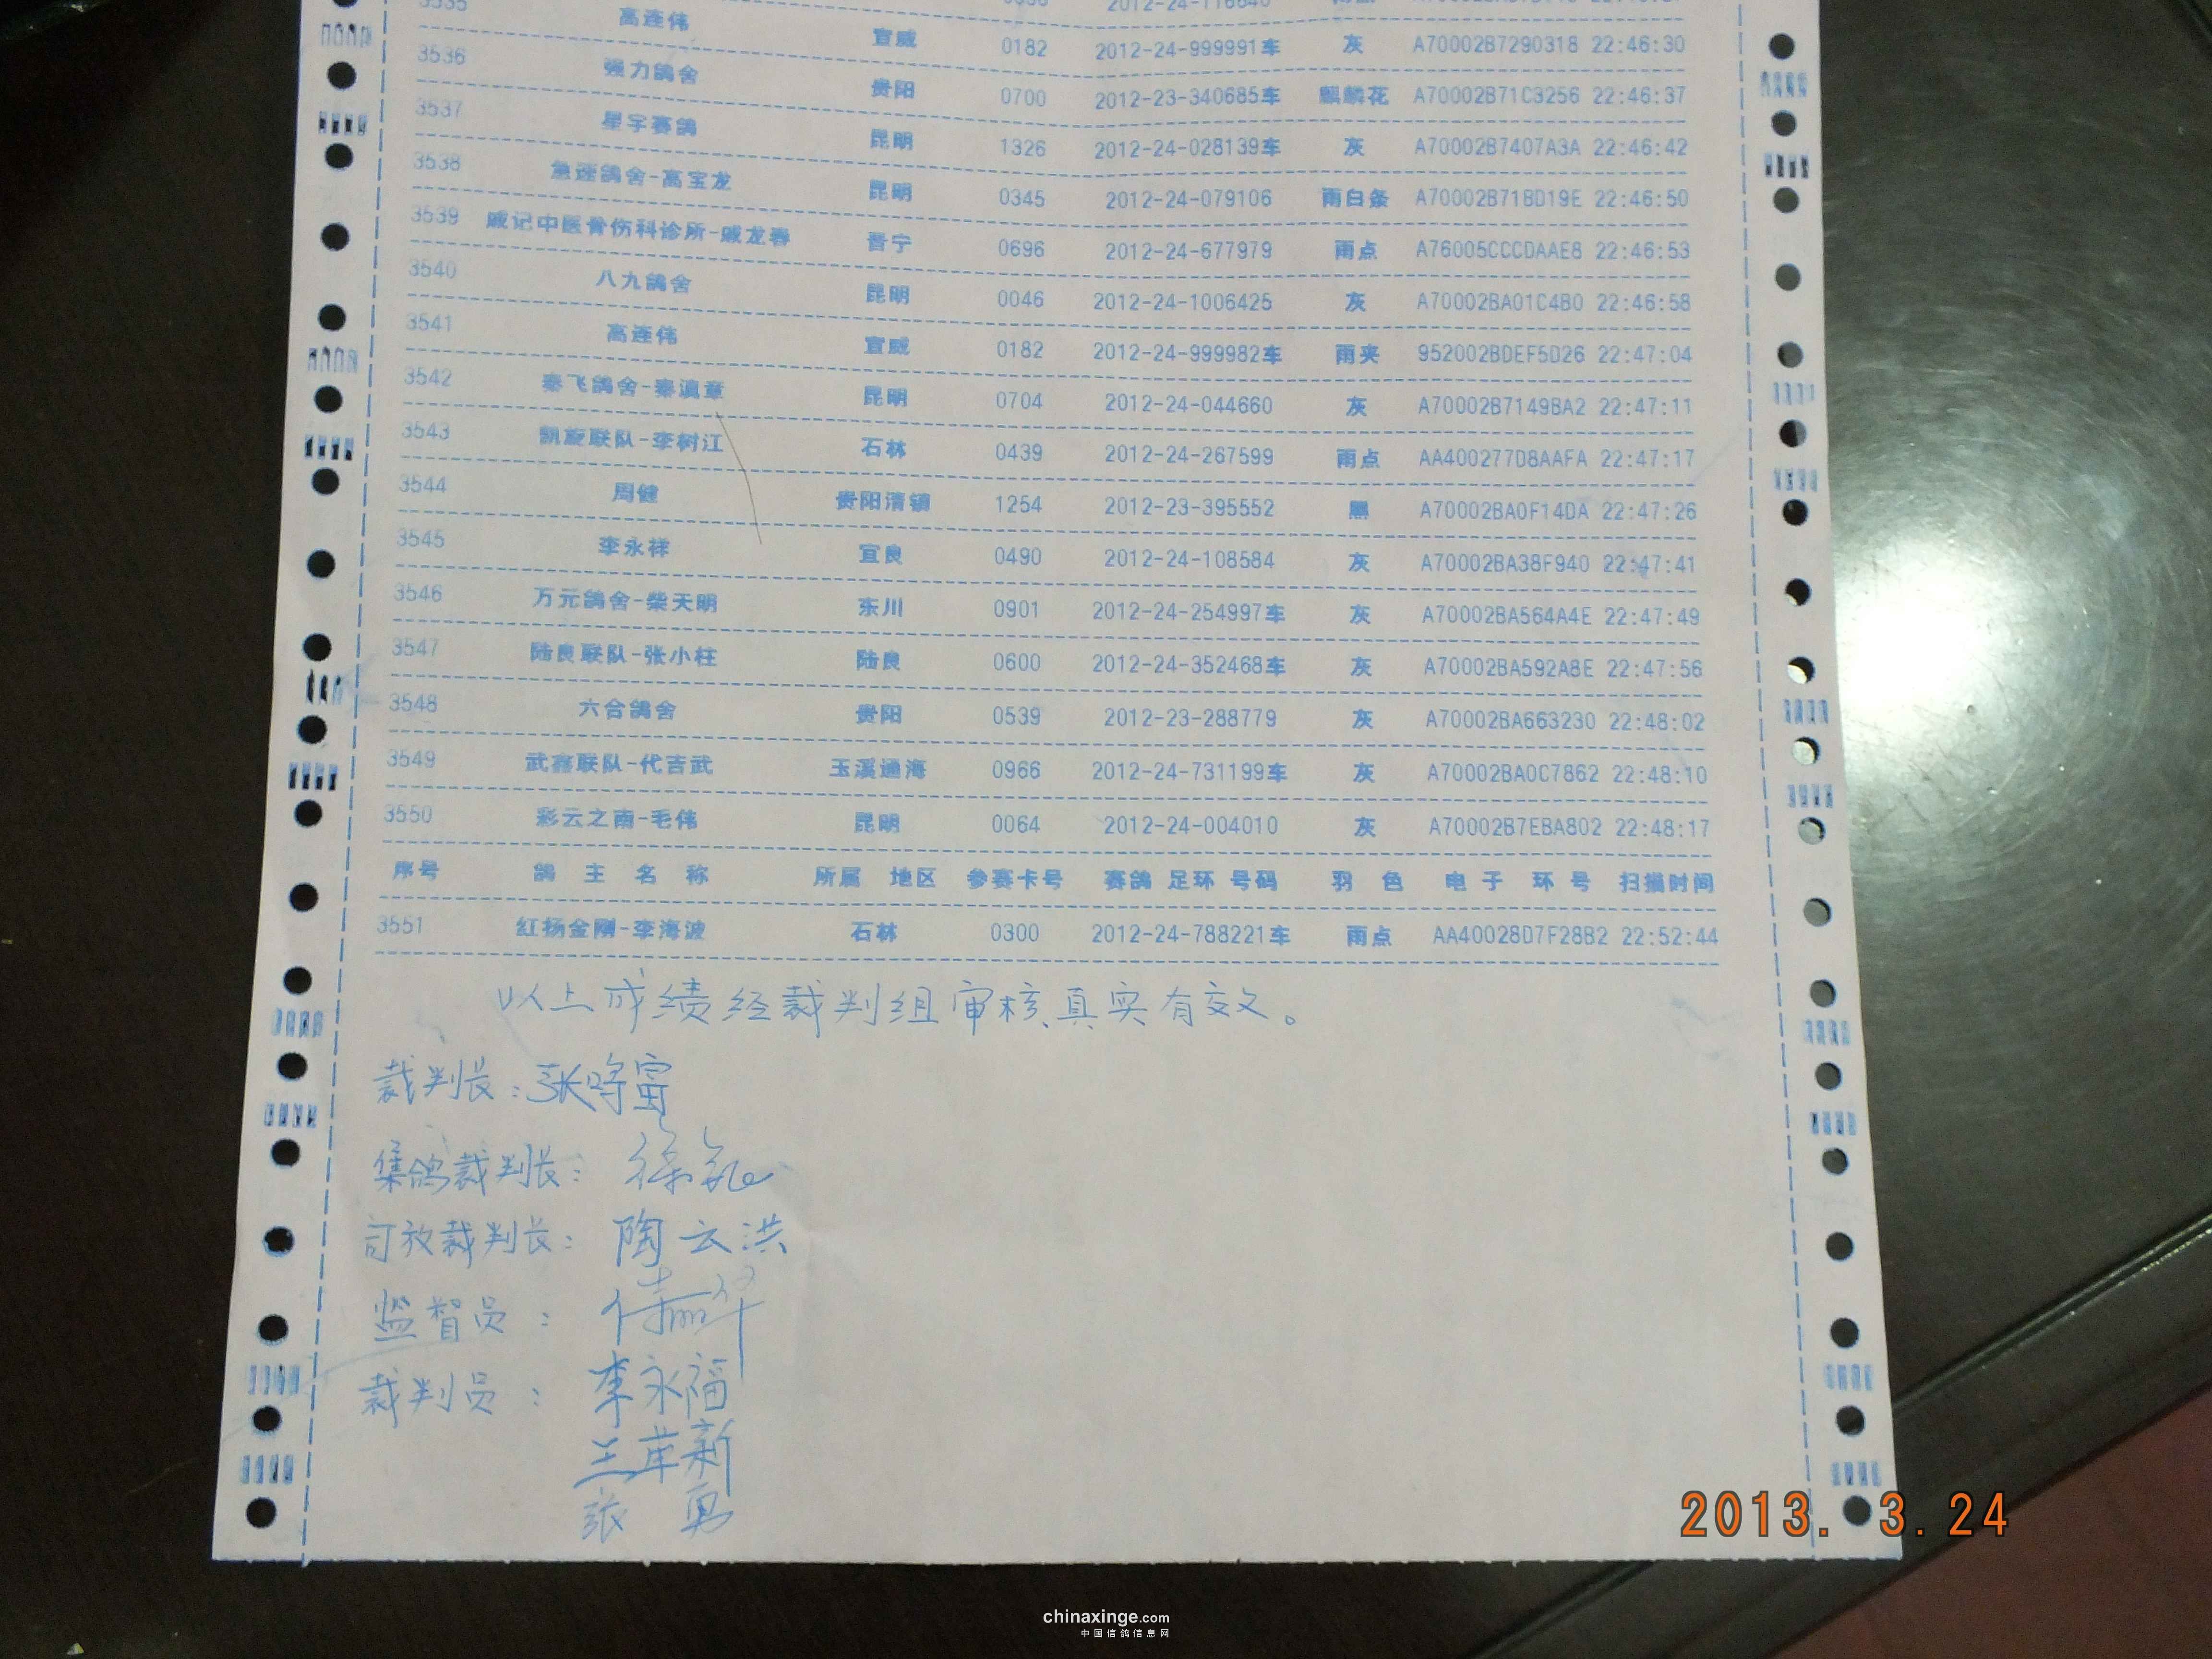 3535 高连伟 宣威 0182 2012-24-999991车 灰 A70002B7290318 22:46:30
3536 强力鸽舍 贵阳 0700 2012-23-340685车 麒麟花 A70002B71C3256 22:46:37
3537 星宇赛鸽 昆明 1326 2012-24-028139车 灰 A70002B7407A3A 22:46:42
3538 急速鸽舍-高宝龙 昆明 0345 2012-24-079106 雨白条 A70002B71BD19E 22:46:50
3539 戚记中医骨伤科诊所-戚龙春 晋宁 0696 2012-24-677979 雨点 A76005CCCDAAE8 22:46:53
3540 八九鸽舍 昆明 0046 2012-24-1006425 灰 A70002BA01C4B0 22:46:58
3541 高连伟 宣威 0182 2012-24-999982车 雨夹 952002BDEF5D26 22:47:04
3542 秦飞鸽舍-秦滇章 昆明 0704 2012-24-044660 灰 A70002B7149BA2 22:47:11
3543 凯旋联队-李树江 石林 0439 2012-24-267599 雨点 AA400277D8AAFA 22:47:17
3544 周健 贵阳清镇 1254 2012-23-395552 黑 A70002BA0F14DA 22:47:26
3545 李永祥 宜良 0490 2012-24-108584 灰 A70002BA38F940 22:47:41
3546 万元鸽舍-柴天明 东川 0901 2012-24-254997车 灰 A70002BA564A4E 22:47:49
3547 陆良联队-张小柱 陆良 0600 2012-24-352468车 灰 A70002BA592A8E 22:47:56
3548 六合鸽舍 贵阳 0539 2012-23-288779 灰 A70002BA663230 22:48:02
3549 武鑫联队-代吉武 玉溪通海 0966 2012-24-731199车 灰 A70002BA0C7862 22:48:10
3550 彩云之南-毛伟 昆明 0064 2012-24-004010 灰 A70002B7EBA802 22:48:17
序号 鸽 主 名 称 所属 地区 参赛卡号 赛鸽 足环 号码 羽 色 电 子 环 号 扫描时间
3551 红扬金刚-李海波 石林 0300 2012-24-788221车 雨点 AA40028D7F28B2 22:52:44
以上成绩经裁判组审核、真实有效。
裁判长：张
集鸽裁判长：徐
司放裁判长：陶云洪
监督员：
裁判员：李永福
新
张勇
2013. 3.24
chinaxinge.com
中国信鸽信息网